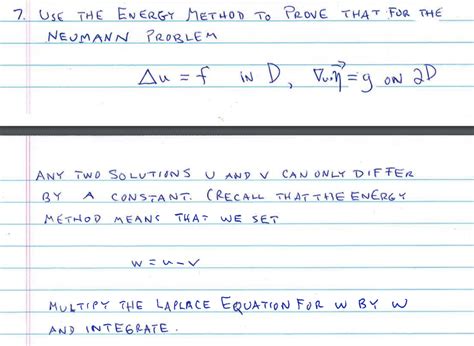 7. USE THE ENERGY METHOD TO PROVE THAT FOR THE
NEUMANN PROBLEM
Δu = f in D, ∇u·η⃗ = g ON ∂D
ANY TWO SOLUTIONS U AND V CAN ONLY DIFFER
BY A CONSTANT. (RECALL THAT THE ENERGY
METHOD MEANS THAT WE SET
w = u - v
MULTIPY THE LAPLACE EQUATION FOR W BY W
AND INTEGRATE.